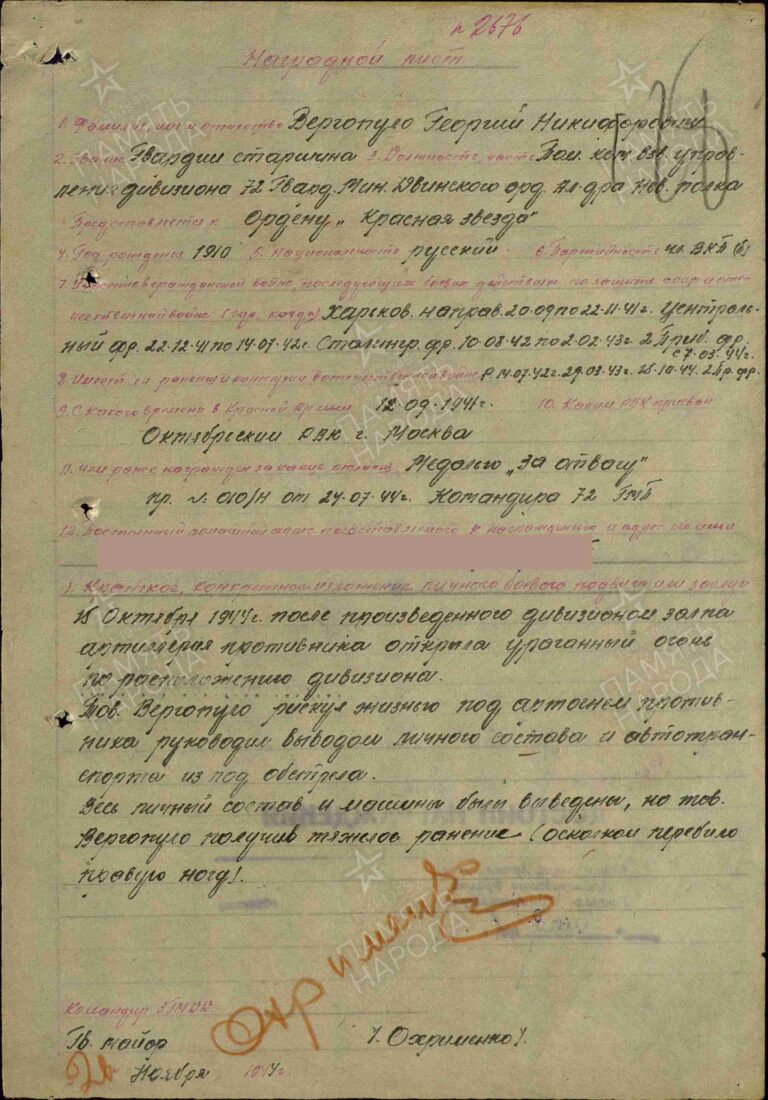 п 2676
Наградной лист
1. Фамилия, имя и отчество Вергопуло Георгий Никифорович
2. Звание Гвардии старшина 3. Должность, часть Пом. ком. взв. управ-
ления дивизиона 72 Гвард. Мин. Двинского орд. Ал-дра Нев. полка
Представляется к Ордену „Красная звезда"
4. Год рождения 1910 5. Национальность русский. 6. Партийность чл. ВКП(б)
7. Участие в гражданской войне, последующих боевых действиях по защите СССР и оте-
чественной войне (где, когда) Харьков. направ. 20.09 по 22.11.41г. Централь-
ный фр. 22.12.41 по 14.07.42г. Сталингр. фр. 10.08.42 по 2.02.43г. 2 Приб. фр.
с 7.03.44г.
8. Имеет ли ранения и контузии в отечественной войне 14.07.42г. 29.03.43г. 15.10.44. 2 Пр. фр.
9. С какого времени в Красной Армии 12.09.1941г. 10. Каким РВК призван
Октябрьским РВК г. Москва
11. Чем ранее награжден за какие отличия Медалью „За отвагу"
пр. № 010/н от 24.07.44г. Командира 72 ГМП
12. Постоянный домашний адрес представляемого к награждению и адрес его семьи
1. Краткое, конкретное изложение личного боевого подвига или заслуг
15 Октября 1944г. после произведенного дивизионом залпа
артиллерия противника открыла ураганный огонь
по расположению дивизиона.
Тов. Вергопуло рискуя жизнью под артогнем против-
ника руководил выводом личного состава и автотран-
спорта из под обстрела.
Весь личный состав и машины были выведены, но тов.
Вергопуло получив тяжелое ранение (осколком перебило
правую ногу).
Командир
Гв. майор /Охрименко/.
26 Ноября 1944г.
ПАМЯТЬ
НАРОДА